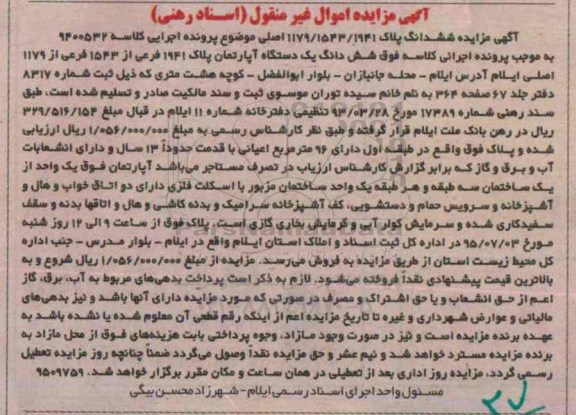 آگهی مزایده اموال غیر منقول (اسناد رهنی)
آگهی مزایده ششدانگ پلاک ۱۱۷۹/۱۵۴۳/۱۹۴۱ اصلی موضوع پرونده اجرایی کلاسه ۹۴۰۰۵۳۲
به موجب پرونده اجرائی کلاسه فوق شش دانگ یک دستگاه آپارتمان پلاک ۱۹۴۱ فرعی از ۱۵۴۳ فرعی از ۱۱۷۹
اصلی ایلام آدرس ایلام - محله جانبازان - بلوار ابوالفضل - کوچه هشت متری که ذیل ثبت شماره ۸۳۱۷
دفتر جلد ۶۷ صفحه ۳۶۴ به نام خانم سیده توران موسوی ثبت و سند مالکیت صادر و تسلیم شده است، طبق
سند رهنی شماره ۱۷۳۸۹ مورخ ۹۳/۰۳/۲۸ تنظیمی دفترخانه شماره ۱۱ ایلام در قبال مبلغ ۳۲۹/۵۱۶/۱۵۴
ریال در رهن بانک ملت ایلام قرار گرفته و طبق نظر کارشناس رسمی به مبلغ ۱/۰۵۶/۰۰۰/۰۰۰ ریال ارزیابی
شده و پلاک فوق واقع در طبقه اول دارای ۹۶ مترمربع اعیانی با قدمت حدوداً ۱۳ سال و دارای انشعابات
آب و برق و گاز که برابر گزارش کارشناس ارزیاب در تصرف مستاجر می‌باشد آپارتمان فوق یک واحد از
یک ساختمان سه طبقه و هر طبقه یک واحد ساختمان مزبور با اسکلت فلزی دارای دو اتاق خواب و هال و
آشپزخانه و سرویس حمام و دستشویی، کف آشپزخانه سرامیک و بدنه کاشی و هال و اتاقها بدنه و سقف
سفیدکاری شده و سرمایش کولر آبی و گرمایش بخاری گازی است. پلاک فوق از ساعت ۹ الی ۱۲ روز شنبه
مورخ ۹۵/۰۷/۰۳ در اداره کل ثبت اسناد و املاک استان ایلام واقع در ایلام - بلوار مدرس - جنب اداره
کل محیط زیست استان از طریق مزایده به فروش می‌رسد. مزایده از مبلغ ۱/۰۵۶/۰۰۰/۰۰۰ ریال شروع و به
بالاترین قیمت پیشنهادی نقداً فروخته می‌شود. لازم به ذکر است پرداخت بدهی‌های مربوط به آب، برق، گاز
اعم از حق انشعاب و یا حق اشتراک و مصرف در صورتی که مورد مزایده دارای آنها باشد و نیز بدهی‌های
مالیاتی و عوارض شهرداری و غیره تا تاریخ مزایده اعم از اینکه رقم قطعی آن معلوم شده یا نشده باشد به
عهده برنده مزایده است و نیز در صورت وجود مازاد، وجوه پرداختی بابت هزینه‌های فوق از محل مازاد به
برنده مزایده مسترد خواهد شد و نیم عشر و حق مزایده نقداً وصول می‌گردد ضمناً چنانچه روز مزایده تعطیل
رسمی گردد، مزایده روز اداری بعد از تعطیلی در همان ساعت و مکان مقرر برگزار خواهد شد. ۹۵۰۹۷۵۹
مسئول واحد اجرای اسناد رسمی ایلام - شهرزاد محسن بیگی